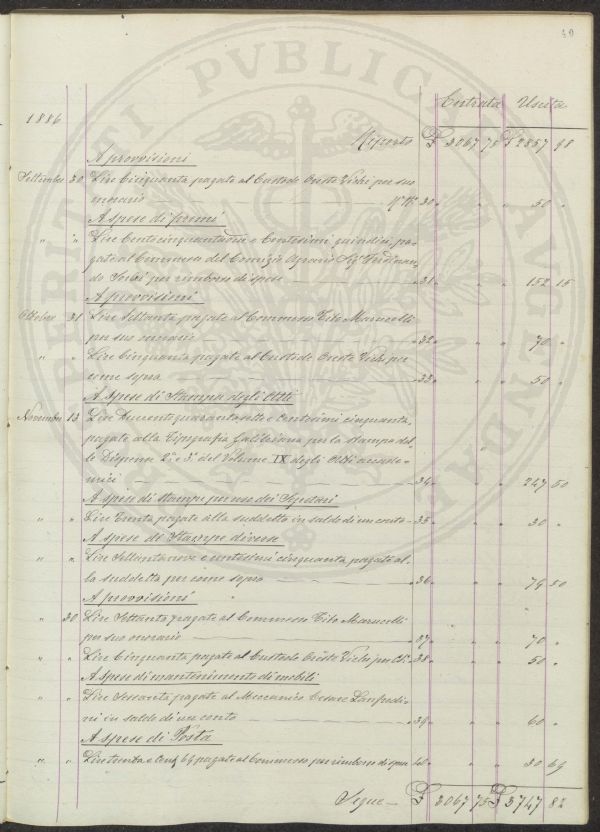 49
Entrata Uscita
1886
Riporto £ 2067 75 £ 2857 98
A provvisioni
Settembre 30 Lire Cinquanta pagate al Custode Oreste Vichi per suo
onorario N.° 30 " " " 50 "
A spese di premi
" " Lire Centocinquantadue e Centesimi quindici, pa-
gate al Commesso del Comizio Agrario Sig. Ferdinan-
do per rimborso di spese " 31 " " " 152 15
A provvisioni
Ottobre 31 Lire Settanta pagate al Commesso Tito Marucelli
per suo onorario " 32 " " " 70 "
" " Lire Cinquanta pagate al Custode Oreste Vichi per
come sopra " 33 " " " 50 "
A Spese di Stampa degli Atti
Novembre 13 Lire Duecentoquarantasette e Centesimi cinquanta,
pagate alla Tipografia Galileiana per la stampa del-
le Dispense 2ª e 3ª del Volume IX degli Atti accade-
mici " 34 " " " 247 50
A spese di stampe per uso dei
" " Lire Trenta pagate alla suddetta in saldo di un conto " 35 " " " 30 "
A spese di Stampe diverse
" " Lire Settantanove e centesimi cinquanta pagate al-
la suddetta per come sopra " 36 " " " 79 50
A provvisioni
" 30 Lire Settanta pagate al Commesso Tito Marucelli
per suo onorario " 37 " " " 70 "
" " Lire Cinquanta pagate al Custode Oreste Vichi per " 38 " " " 50 "
A Spese di mantenimento di mobili
" " Lire Sessanta pagate al Meccanico Cesare Lanfredi-
ni in saldo di un conto " 39 " " " 60 "
A spese di Posta
" " Lire trenta e Cent. 69 pagate al Commesso per rimborso di spese " 40 " " " 30 69
Segue £ 2067 75 £ 3747 82